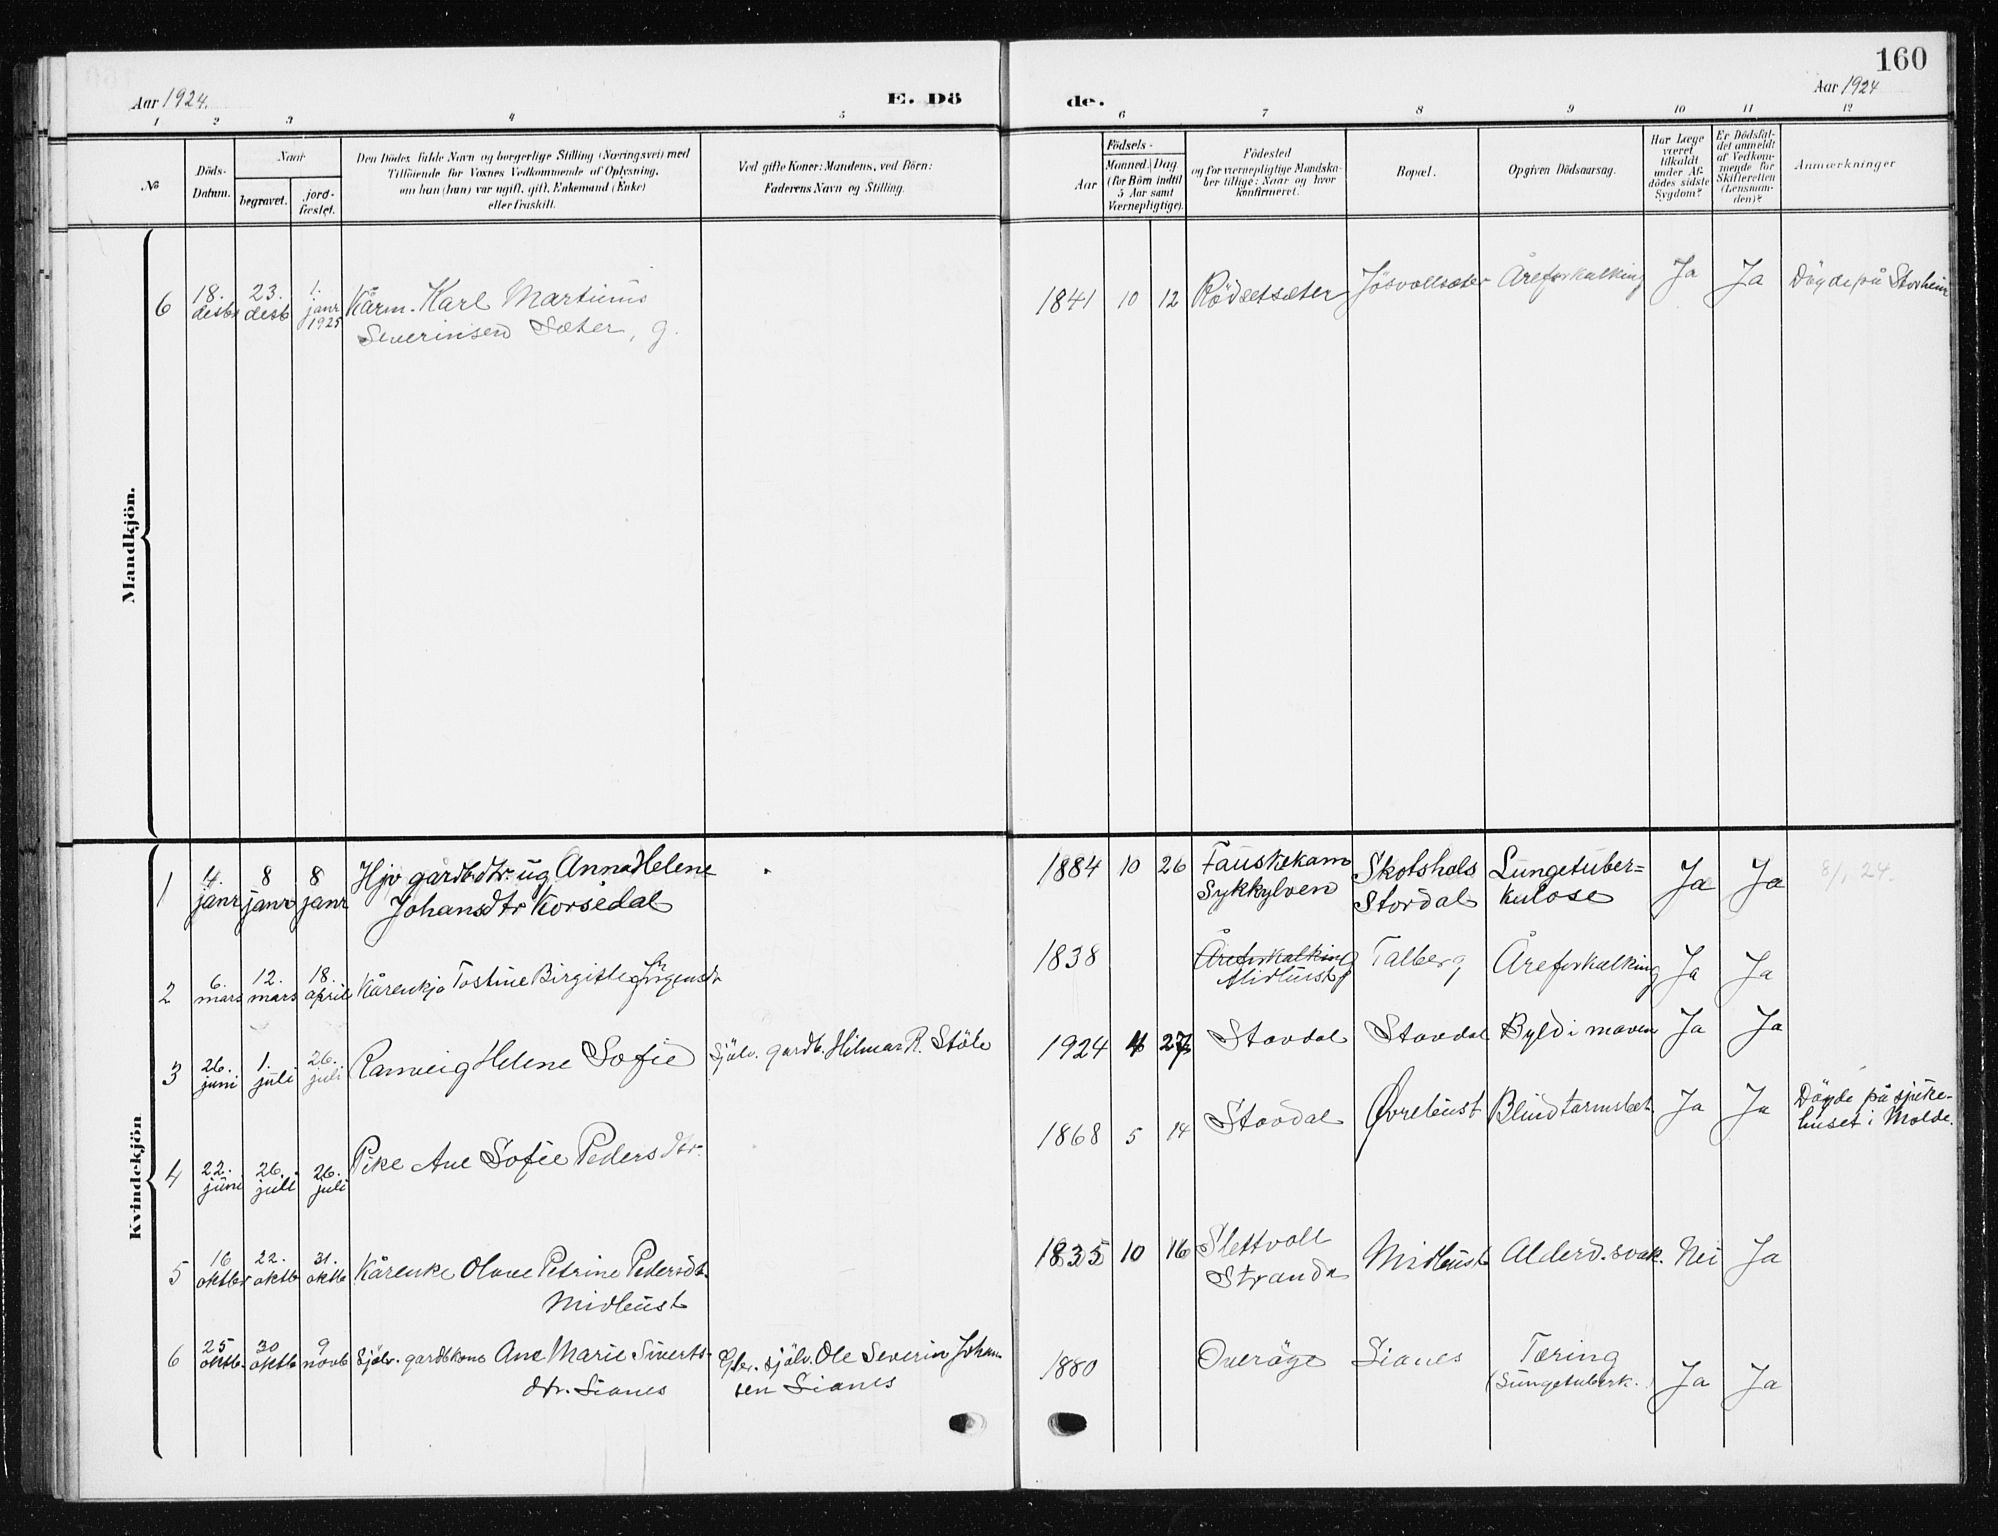 160
Aar 1924.
E. Dö
de.
Aar 1924
1 2 3 4 5 6 7 8 9 10 11 12
№
Döds-
Datum.
Naar
begravet.
jord-
fæstet.
Den Dödes fulde Navn og borgerlige Stilling (Næringsvei) med
Tilföiende for Voxnes Vedkommende af Oplysning,
om han (hun) var ugift, gift, Enkemand (Enke)
eller fraskilt.
Ved gifte Koner: Mandens, ved Börn:
Faderens Navn og Stilling.
Födsels-
Aar
Maaned. Dag
(for Börn indtil
5 Aar samt
Værnepligtige).
Födested
og for værnepligtige Mandska-
ber tillige: Naar og hvor
konfirmeret.
Bopæl.
Opgiven Dödsaarsag.
Har Læge
været
tilkaldt
under Af-
dödes sidste
Sygdom?
Er Dödsfal-
det anmeldt
af Vedkom-
mende for
Skifteretten
(Lensman-
den)?
Anmærkninger
Mandkjön.
6 18. desbr 23. desb 1. janr 1925 Kårm. Karl Martinus
Severinsen Sæter, g.
1841 10 12 Rödsetsæter Jösvollsæter Åreforkalking Ja Ja Döyde på Storheim
Kvindekjön
1 4. janr 8 janr 8 janr Hjv gardb.dtr. ug. Anna Helene
Johansdtr Korsedal
1884 10 26 Fauskekam
Sykkylven
Skotshals
Stordal
Lungetuber=
kulose
Ja Ja 8/1 24.
2 6. mars 12. mars 18. april Kårenkje Tostine Birgitte Jörgensdtr
1838 Åreforkalking
Midtúst
Talberg Åreforkalking Ja Ja
3 26. juni 1. juli 26. juli Ranveig Helene Sofie Sjölv. gardb. Hilmar R. Stöle
1924 4 27 Stordal Stordal Byld i maven Ja Ja
4 22. júni 26. juli 26. juli Pike Ane Sofie Peders dtr.
1868 5 14 Stordal Øvrebúst Blindtarmsbet. Ja Ja Döyde på sjúke-
húset i Molde.
5 16 oktbr 22. oktb 31. oktb Kårenke Olave Petrine Pedersdtr.
Midtbúst
1835 10 16 Slettvoll
Stranda
Midtbúst Alderd. svak. Nei Ja
6 25 oktb. 30 oktb 9 novb Sjölv. gardbkone Ane Marie Siverts-
dtr. Lianes
Gbr. sjölv. Ole Severin Johan-
sen Lianes
1880 Overöye Lianes Tæring
(Lungetuberk.)
Ja Ja